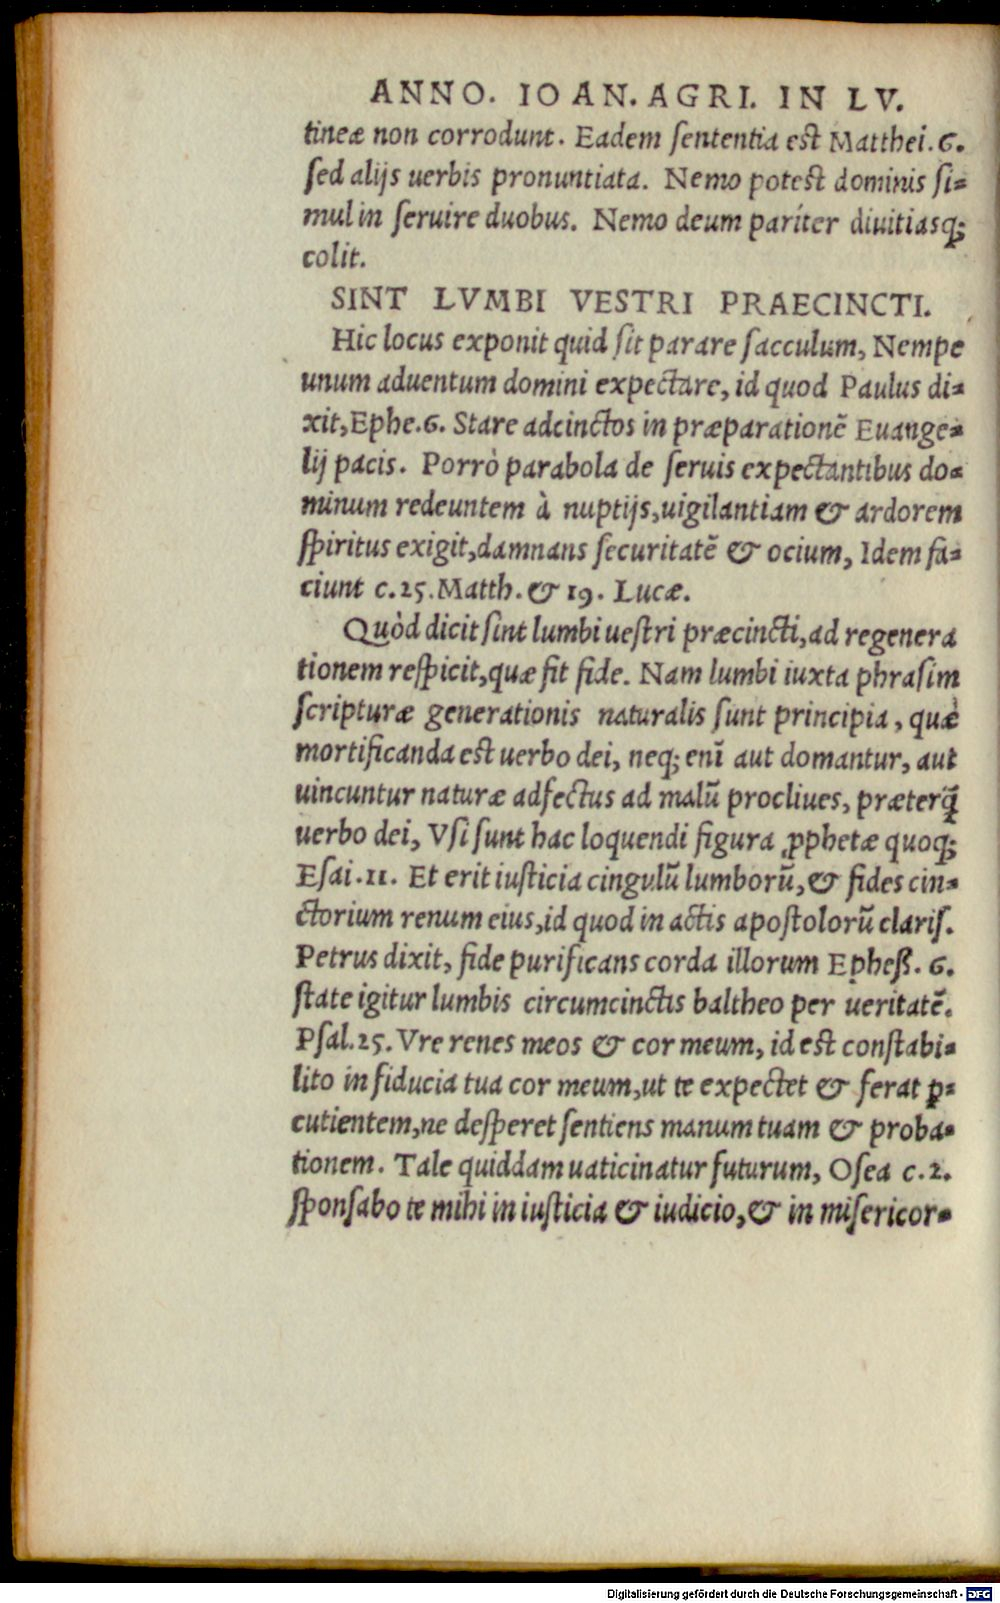 ANNO. IOAN. AGRI. IN LV.
tineæ non corrodunt. Eadem ſententia est Matthei. 6.
ſed alijs uerbis pronuntiata. Nemo potest dominis ſi⸗
mul in ſeruire duobus. Nemo deum pariter diuitiasq;
colit.
SINT LVMBI VESTRI PRAECINCTI.
Hic locus exponit quid ſit parare ſacculum, Nempe
unum aduentum domini expectare, id quod Paulus di⸗
xit, Ephe. 6. Stare adcinctos in præparationẽ Euange⸗
lij pacis. Porrò parabola de ſeruis expectantibus do⸗
minum redeuntem à nuptijs, uigilantiam & ardorem
ſpiritus exigit, damnans ſecuritatẽ & ocium, Idem fa⸗
ciunt c. 25. Matth. & 19. Lucæ.
Quòd dicit ſint lumbi ueſtri præcincti, ad regenera
tionem reſpicit, quæ fit fide. Nam lumbi iuxta phraſim
ſcripturæ generationis naturalis ſunt principia, quæ
mortificanda est uerbo dei, neq; enĩ aut domantur, aut
uincuntur naturæ adfectus ad malũ procliues, præterq̃
uerbo dei, Vſi ſunt hac loquendi figura ꝓphetæ quoq;
Eſai. 11. Et erit iuſticia cingulũ lumborũ, & fides cin⸗
ctorium renum eius, id quod in actis apoſtolorũ clariſ.
Petrus dixit, fide purificans corda illorum Epheß. 6.
ſtate igitur lumbis circumcinctis baltheo per ueritatẽ.
Pſal. 25. Vre renes meos & cor meum, id est conſtabi⸗
lito in fiducia tua cor meum, ut te expectet & ferat ꝑ⸗
cutientem, ne deſperet ſentiens manum tuam & proba⸗
tionem. Tale quiddam uaticinatur futurum, Oſea c. 2.
ſponſabo te mihi in iuſticia & iudicio, & in miſericor⸗
Digitalisierung gefördert durch die Deutsche Forschungsgemeinschaft - DFG